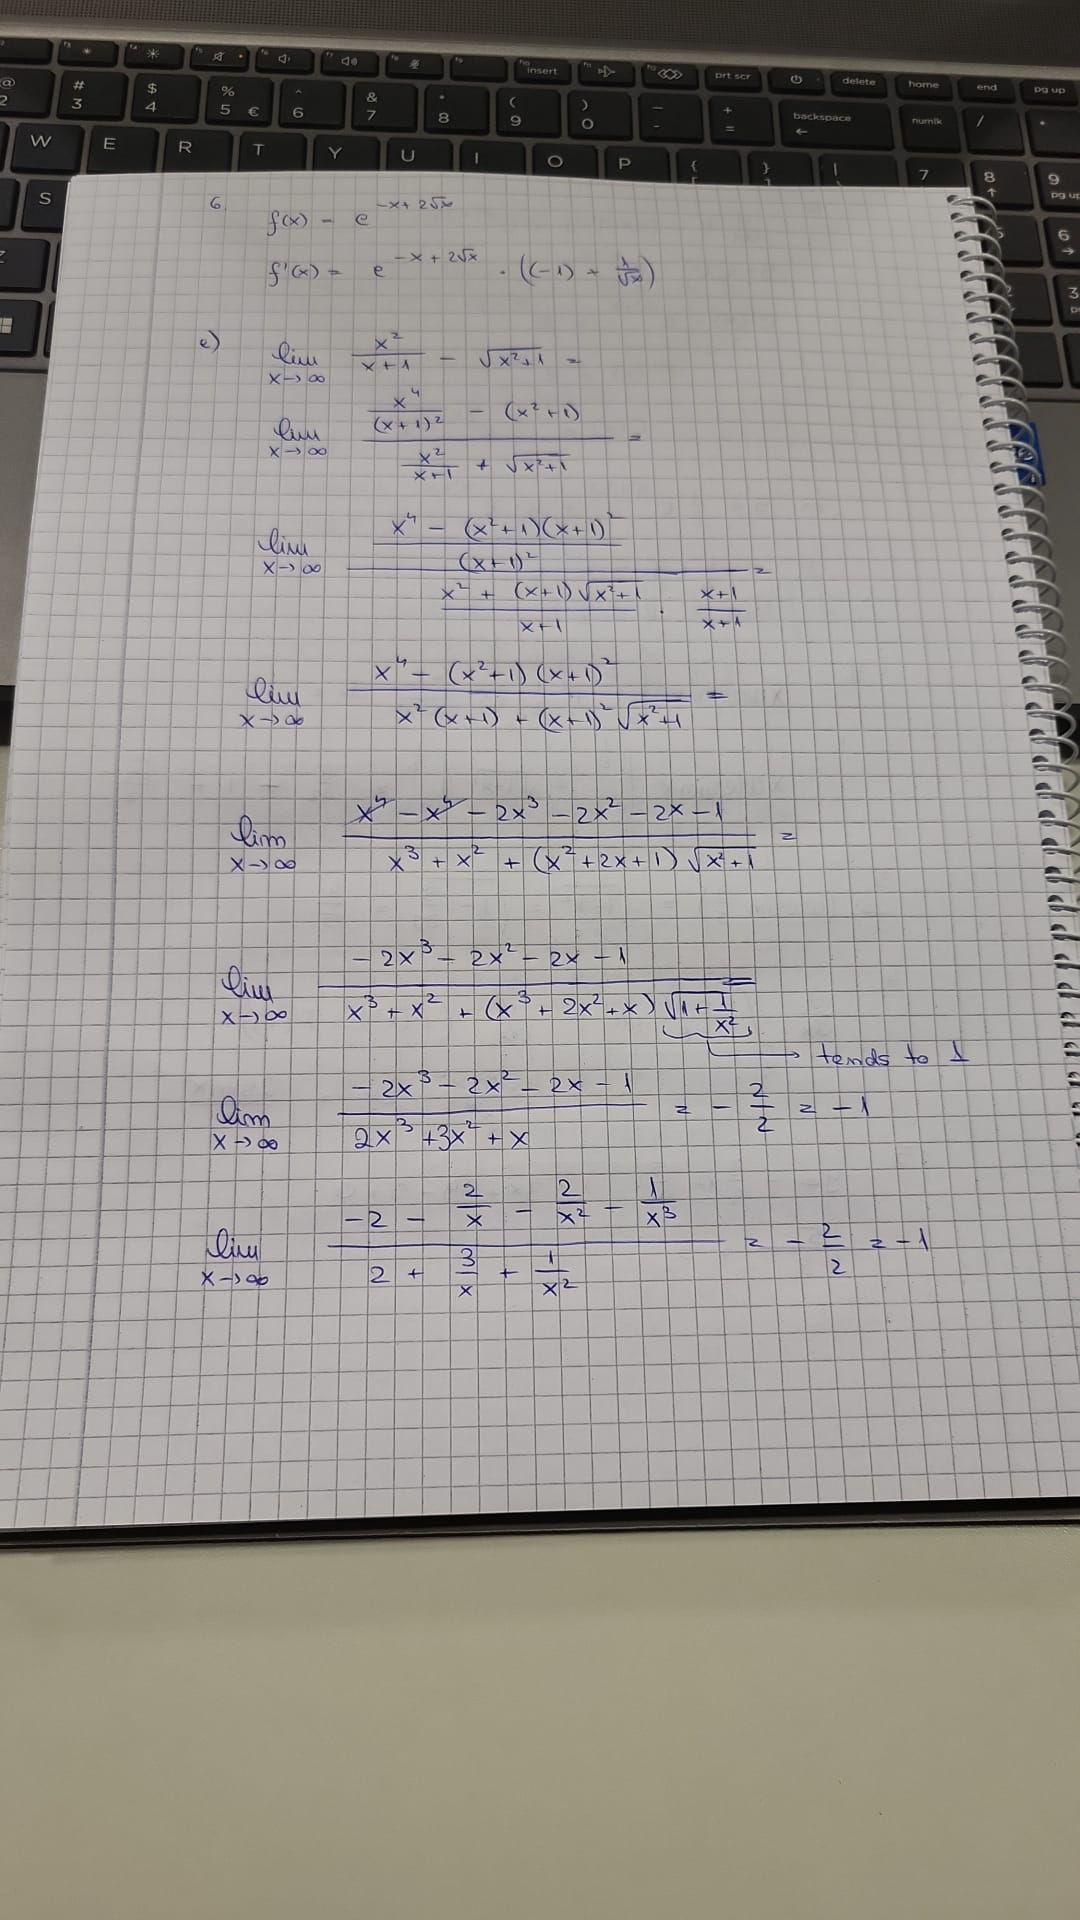 insert
prt scr
delete
home
end
pg up
@ 2
# 3
$ 4
% 5 €
^ 6
& 7
* 8
( 9
) 0
_ -
+ =
backspace ←
numlk
/
*
W E R T Y U I O P { [ } ] |
7
8 ↑
9 pg up
S
6 →
6.
f(x) = e^{-x+2√x}
f'(x) = e^{-x+2√x} · ((-1) + \frac{1}{√x})
e) lim_{x→∞} \frac{x^2}{x+1} - √(x^2+1) =
lim_{x→∞} \frac{\frac{x^4}{(x+1)^2} - (x^2+1)}{\frac{x^2}{x+1} + √(x^2+1)} =
lim_{x→∞} \frac{\frac{x^4 - (x^2+1)(x+1)^2}{(x+1)^2}}{\frac{x^2 + (x+1)√(x^2+1)}{x+1} · \frac{x+1}{x+1}} =
lim_{x→∞} \frac{x^4 - (x^2+1)(x+1)^2}{x^2(x+1) + (x+1)^2 √(x^2+1)} =
lim_{x→∞} \frac{x^4 - x^4 - 2x^3 - 2x^2 - 2x - 1}{x^3 + x^2 + (x^2+2x+1) √(x^2+1)} =
lim_{x→∞} \frac{-2x^3 - 2x^2 - 2x - 1}{x^3 + x^2 + (x^3 + 2x^2 + x) √(1+\frac{1}{x^2})} =
→ tends to 1
lim_{x→∞} \frac{-2x^3 - 2x^2 - 2x - 1}{2x^3 + 3x^2 + x} = -\frac{2}{2} = -1
lim_{x→∞} \frac{-2 - \frac{2}{x} - \frac{2}{x^2} - \frac{1}{x^3}}{2 + \frac{3}{x} + \frac{1}{x^2}} = -\frac{2}{2} = -1